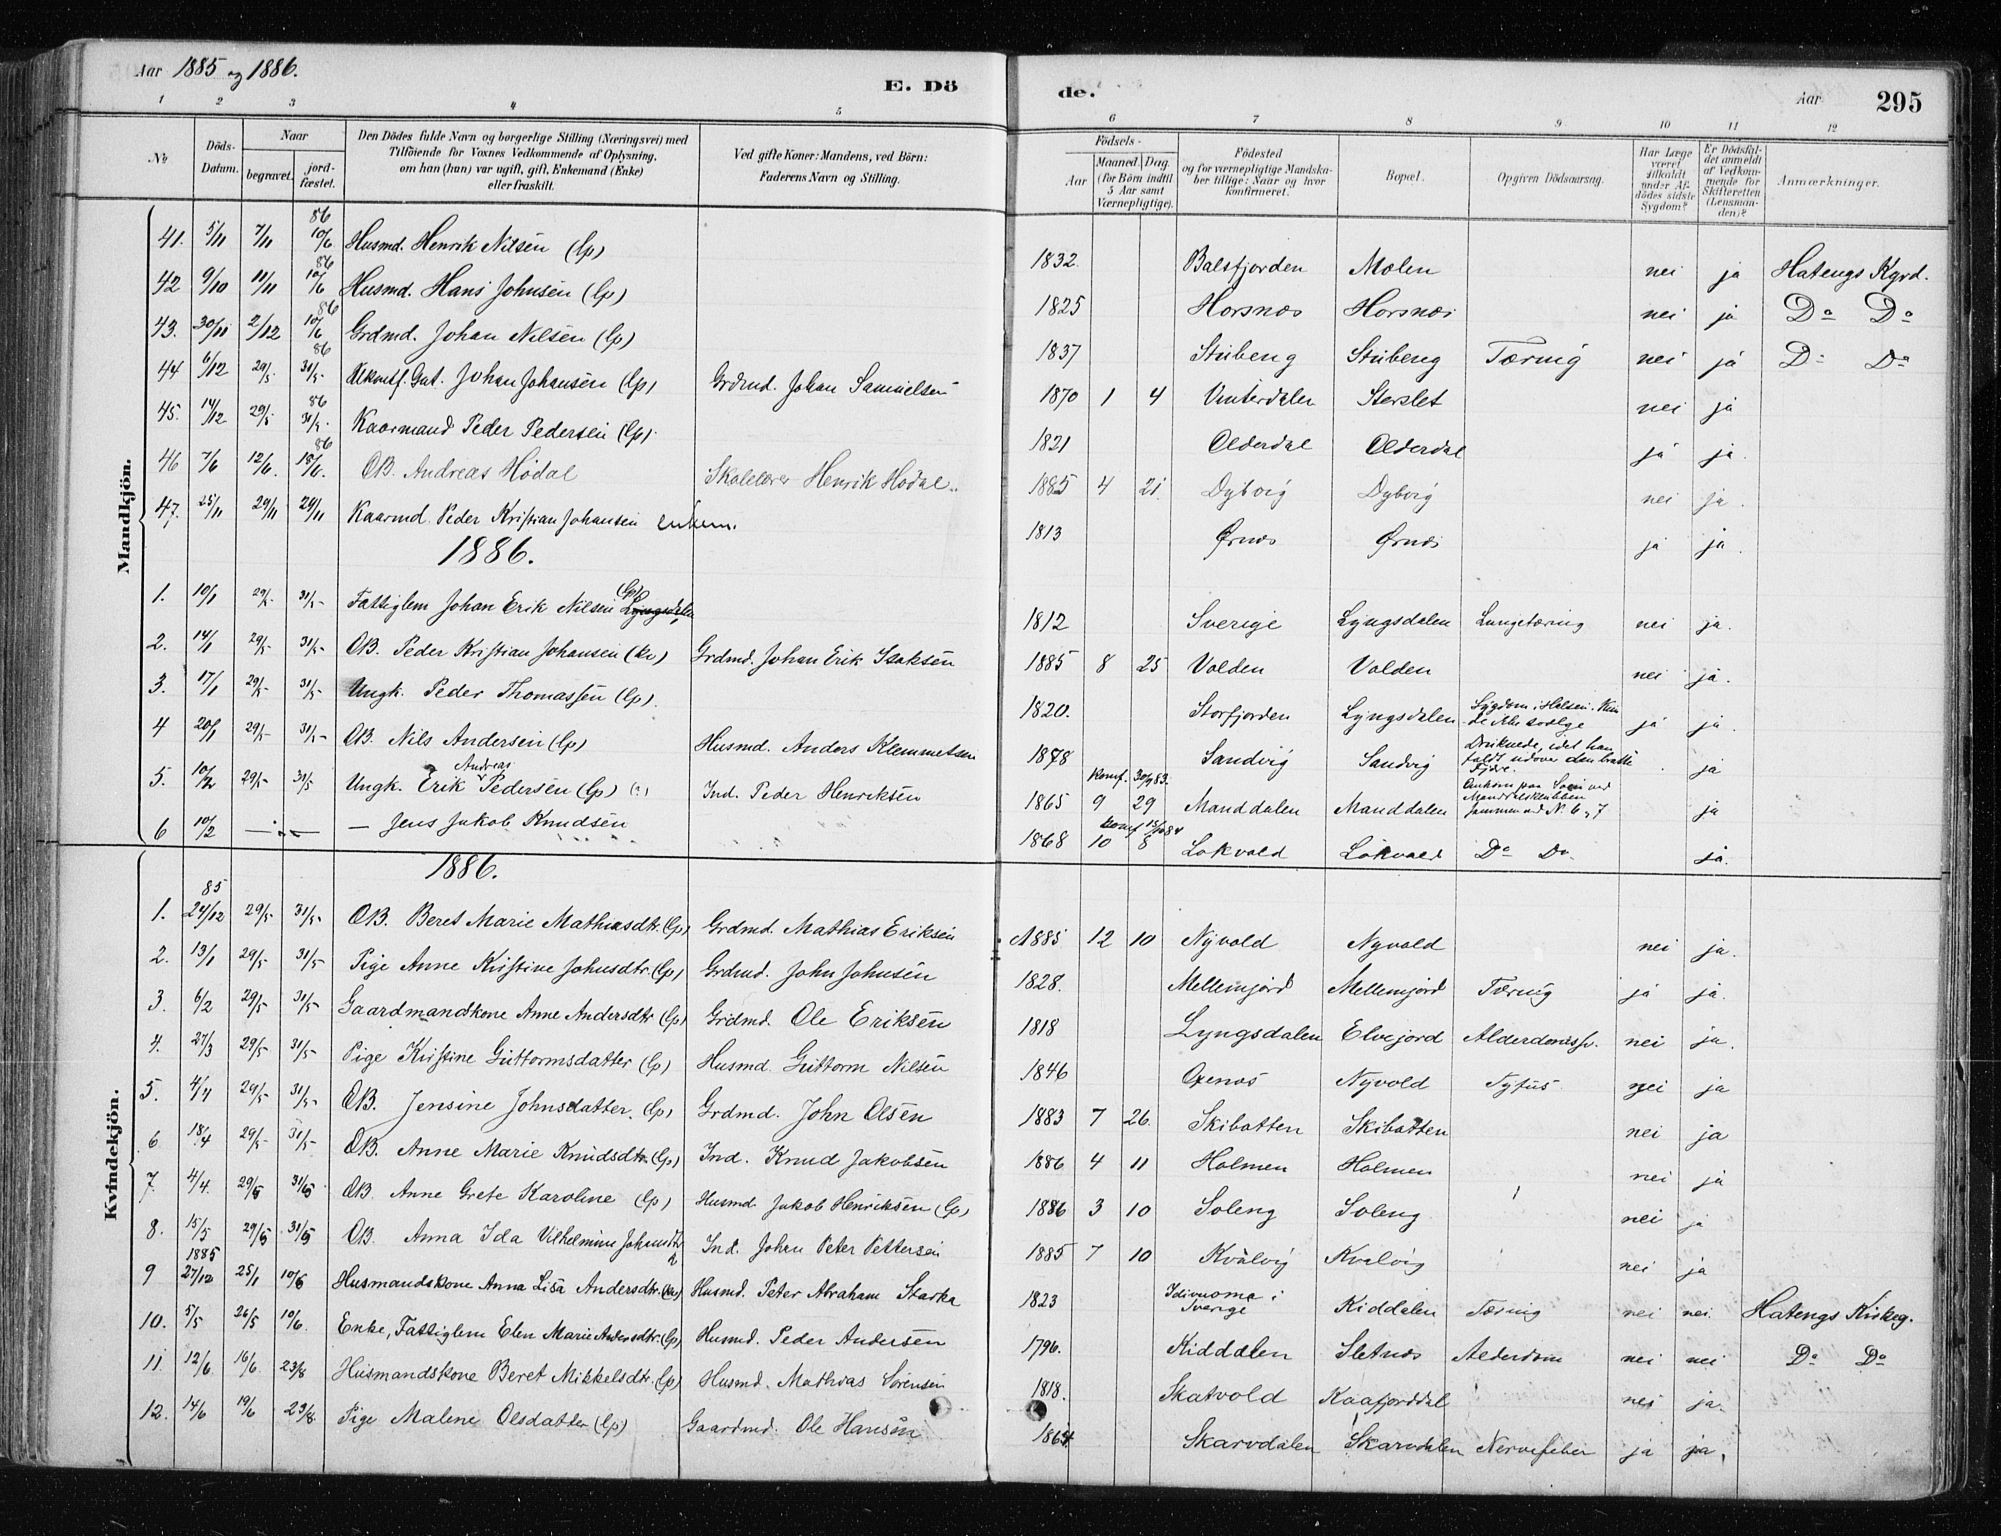 Aar 1885 og 1886.
E. Dö de.
Aar 295
1 2 3 4 5 6 7 8 9 10 11 12
Mandkjön.
Kvindekjön.
No
Döds-Datum.
Naar
begravet.
jordfæstet.
Den Dödes fulde Navn og borgerlige Stilling (Næringsvei) med
Tilföiende for Voxnes Vedkommende af Oplysning,
om han (hun) var ugift, gift, Enkemand (Enke)
eller fraskilt.
Ved gifte Koner: Mandens, ved Börn:
Faderens Navn og Stilling.
Födsels-
Aar
Maaned. Dag.
(for Börn indtil
5 Aar samt
Værnepligtige).
Födested
og for værnepligtige Mandskaber tillige: Naar og hvor
konfirmeret.
Bopæl.
Opgiven Dödsaarsag.
Har Læge
været
tilkaldt
under Afdödes sidste
Sygdom?
Er Dödsfaldet anmeldt
af Vedkommende for
Skifteretten
(Lensmanden)?
Anmærkninger.
41. 5/11 7/11 86 10/6 Husmd. Henrik Nilsen (Lp) 1832 Balsfjorden Molen nei ja Hatengs Kgrd.
42 9/10 11/11 86 10/6 Husmd. Hans Johnsen (Lp) 1825 Horsnæs Horsnæs nei ja Do Do
43. 30/11 2/12 86 10/6 Grdmd. Johan Nilsen (Lp) 1837 Stubeng Stubeng Tæring nei ja Do Do
44 6/12 29/5 86 31/5 Ukonf. Gut. Johan Johansen (Lp) Grdmd. Johan Samuelsen 1870 1 4 Vinterdalen Sterslet nei ja
45. 14/12 29/5 86 31/5. Kaarmand Peder Pedersen (Lp). 1821 Olderdal Olderdal ja ja.
46 7/6 12/6. 86 18/6. OB. Andreas Hödal Skolelærer Henrik Hödal. 1885 4 21 Dybvig Dybvig nei ja.
47. 25/11 29/11 29/11 Kaarmd. Peder Kristian Johansen Enkem. 1813 Ørnæs Ørnæs ja ja.
1886.
1. 10/1 29/5. 31/5- Fattiglem Johan Erik Nilsen (Lp) 1812 Sverige Lyngsdalen Lungetæring nei ja.
2. 14/1 29/5- 31/5- OB. Peder Kristian Johansen (Kv) Grdmd. Johan Erik Isaksen 1885 8 25 Volden Volden nei ja.
3. 17/1 29/5- 31/5- Ungk. Peder Thomassen (Lp). 1820. Storfjorden Lyngsdalen Sygdom i Halsen. ja ja.
4 20/1 29/5- 31/5- OB. Nils Andersen (Lp) Husmd. Anders Klemmetsen 1878 Sandvig Sandvig Druknede, idet han faldt udover den bratte Fjære. ja
5. 10/2 29/5- 31/5 Ungk. Erik Andreas Pedersen (Lp) Ind. Peder Henriksen Konf. 30/9 83. 1865 9 29 Manddalen Manddalen Omkom paa Søen ved Manddalsklubben sammen med N. 6 og 7 ja
6 10/2 — Jens Jakob Knudsen 1868 10 8 Lökvold Lökvold Do Do. ja.
1886.
1. 85 24/12 29/5- 31/5- OB. Beret Marie Mathiasdtr. (Lp) Grdmd. Mathias Eriksen 1885 12 10 Nyvold Nyvold nei ja.
2. 13/1 29/5- 31/5- Pige Anne Kristine Johnsdtr. (Lp) Grdmd. John Johnsen 1828. Mellemjord Mellemjord Tæring ja ja.
3. 6/2 29/5- 31/5- Gaardmandskone Anne Andersdtr (Lp) Grdmd. Ole Eriksen 1818 Lyngsdalen Elvejord Alderdomssv. nei ja.
4. 27/3 29/5- 31/5- Pige Kristine Guttormsdatter (Lp) Husmd. Guttorm Nilsen 1846 Oxenæs Nyvold Tyfus nei ja
5. 4/4 29/5- 31/5- OB. Jensine Johnsdatter. (Lp) Grdmd. John Olsen 1883 7 26. Skibotten Skibotten nei ja
6 18/4 29/5- 31/5- OB. Anne Marie Knudsdtr. (Lp) Ind. Knud Jakobsen 1886 4 11 Holmen Holmen nei ja
7. 4/4. 29/5 31/5 OB. Anne Grete Karoline (Lp) Husmd. Jakob Henriksen (Lp) 1886 3 10 Soleng Soleng nei ja
8. 15/5 29/5 31/5 OB. Anna Ida Vilhelmine Johansdtr Ind. Johan Peter Pettersen 1885 7 10 Kvalvig Kvalvig nei ja
9 1885 27/12 25/1 10/6 Husmandskone Anna Lisa Andersdtr. (Kv) Husmd. Peter Abraham Starka 1823 Idivuoma i Sverige Kiddalen Tæring nei nei. Hatengs Kirkeg.
10. 5/5 26/5 10/6. Enke, Fattiglem Elen Marie Andersdtr. (Lp) Husmd. Peder Andersen 1796. Kidddalen Sletnæs Alderdom nei nei Do Do
11. 12/6 16/6 23/8 Husmandskone Beret Mikkelsdtr. (Lp) Husmd. Mathias Sörensen 1818. Skatvold Kaafjorddal nei ja.
12. 14/6 19/6 23/8. Pige Malene Olsdatter (Lp) Gaardmd. Ole Hansen 1864 Skarvdalen Skarvdalen Nervefeber ja ja.